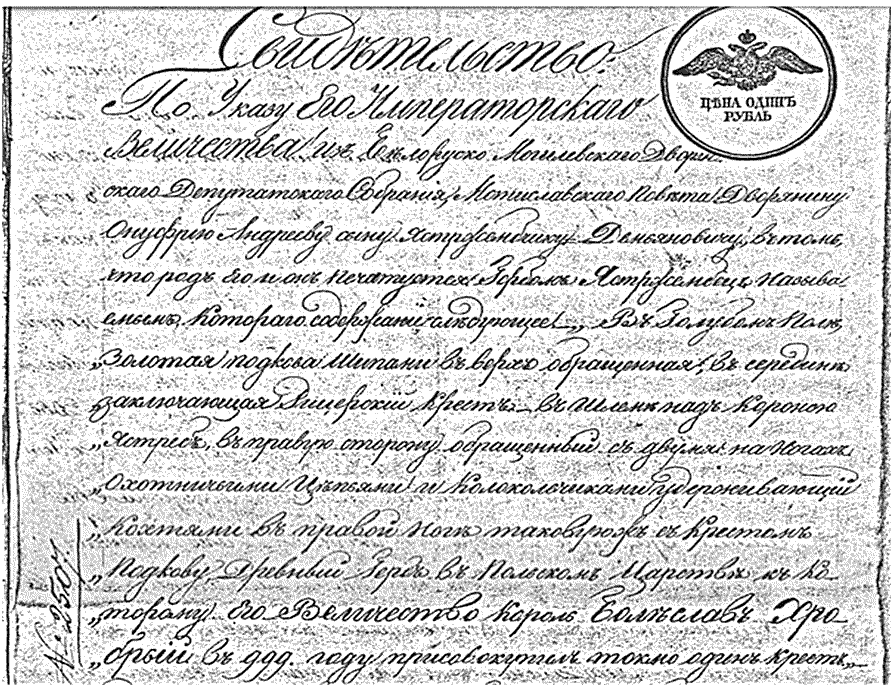 Свидѣтельство.
ЦѢНА ОДИНЪ
РУБЛЬ
По Указу Его Императорскаго
Величества изъ Бѣлоруско Могилевскаго Дворян
скаго Депутатскаго Собранія, Мстиславскаго Повѣта Дворянину
Онуфрию Андрееву сыну Ястржембчику Демьяновичу, въ томъ,
что родъ Его и онъ печатуется Гербомъ Ястржембецъ Называ
емымъ, котораго содержаніе слѣдующее: „Въ Голубомъ Полѣ
„Золотая подкова Шипами въ верхъ обращенная, въ серединѣ
„заключающая Рицерскій Крестъ, въ Шлемѣ надъ Короною
„Ястребъ, въ правую сторону обращенный съ двумя на Ногахъ
„Охотничьими Цѣпьями и Колокольчиками удерживающій
„Когтями въ правой Ногѣ таковуюжъ съ Крестомъ
„Подкову, Древный Гербъ въ Польскомъ Царствѣ къ ко-
„торому Его Величество Король Болѣславъ Хро
„брый въ 999. году присовокупилъ токмо одинъ Крестъ,„
№ 250.